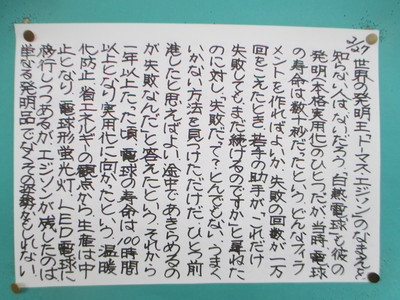 2/27 世界の発明王「トーマス・エジソン」のなまえを
知らない人はないだろう。「白熱電球」も彼の
発明(本格実用化)のひとつだが、当時、電球
の寿命は数十秒だったという。どんなフィラ
メントを作ればよいか、失敗の回数が一万
回をこえたとき、若手の助手が、「これだけ
失敗しても、まだ続けるのですか」と尋ねた
のに対し、「失敗だって?とんでもない。うまく
いかない方法を見つけただけだ。ひとつ前
進したと思えばよい。途中であきらめるの
が失敗なんだ」と答えたという。それから
一年以上たった頃、電球の寿命は100時間
以上となり実用化に向かったという。温暖
化防止、省エネルギーの観点から、生産は中
止となり、電球形蛍光灯、LED電球に
移行しつつあるが、エジソンが残したのは
単なる発明品でなくその姿勢かもしれない。